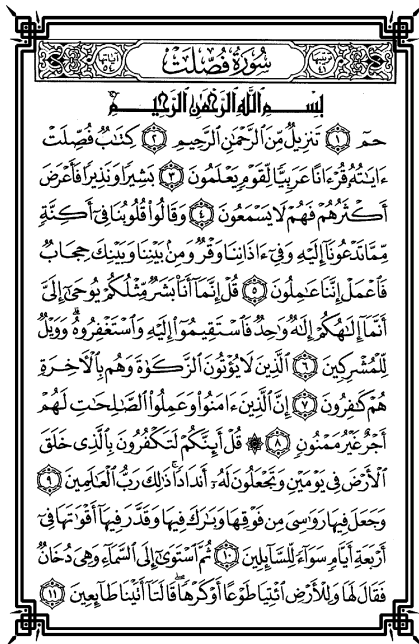 ترتيبها ٤١ سُورَةُ فُصِّلَتْ آياتها ٥٤
بِسْمِ اللَّهِ الرَّحْمَٰنِ الرَّحِيمِ
حمٓ ١ تَنزِيلٌ مِّنَ الرَّحْمَٰنِ الرَّحِيمِ ٢ كِتَابٌ فُصِّلَتْ
ءَايَاتُهُۥ قُرْءَانًا عَرَبِيًّا لِّقَوْمٍ يَعْلَمُونَ ٣ بَشِيرًا وَنَذِيرًا فَأَعْرَضَ
أَكْثَرُهُمْ فَهُمْ لَا يَسْمَعُونَ ٤ وَقَالُوا۟ قُلُوبُنَا فِىٓ أَكِنَّةٍ
مِّمَّا تَدْعُونَآ إِلَيْهِ وَفِىٓ ءَاذَانِنَا وَقْرٌ وَمِنۢ بَيْنِنَا وَبَيْنِكَ حِجَابٌ
فَٱعْمَلْ إِنَّنَا عَامِلُونَ ٥ قُلْ إِنَّمَآ أَنَا۠ بَشَرٌ مِّثْلُكُمْ يُوحَىٰٓ إِلَىَّ
أَنَّمَآ إِلَٰهُكُمْ إِلَٰهٌ وَٰحِدٌ فَٱسْتَقِيمُوٓا۟ إِلَيْهِ وَٱسْتَغْفِرُوهُ ۗ وَوَيْلٌ
لِّلْمُشْرِكِينَ ٦ ٱلَّذِينَ لَا يُؤْتُونَ ٱلزَّكَوٰةَ وَهُم بِٱلْءَاخِرَةِ
هُمْ كَٰفِرُونَ ٧ إِنَّ ٱلَّذِينَ ءَامَنُوا۟ وَعَمِلُوا۟ ٱلصَّٰلِحَٰتِ لَهُمْ
أَجْرٌ غَيْرُ مَمْنُونٍ ٨ ۞ قُلْ أَئِنَّكُمْ لَتَكْفُرُونَ بِٱلَّذِى خَلَقَ
ٱلْأَرْضَ فِى يَوْمَيْنِ وَتَجْعَلُونَ لَهُۥٓ أَندَادًا ۚ ذَٰلِكَ رَبُّ ٱلْعَٰلَمِينَ ٩
وَجَعَلَ فِيهَا رَوَٰسِىَ مِن فَوْقِهَا وَبَٰرَكَ فِيهَا وَقَدَّرَ فِيهَآ أَقْوَٰتَهَا فِىٓ
أَرْبَعَةِ أَيَّامٍ سَوَآءً لِّلسَّآئِلِينَ ١٠ ثُمَّ ٱسْتَوَىٰٓ إِلَى ٱلسَّمَآءِ وَهِىَ دُخَانٌ
فَقَالَ لَهَا وَلِلْأَرْضِ ٱئْتِيَا طَوْعًا أَوْ كَرْهًا ۖ قَالَتَآ أَتَيْنَا طَآئِعِينَ ١١